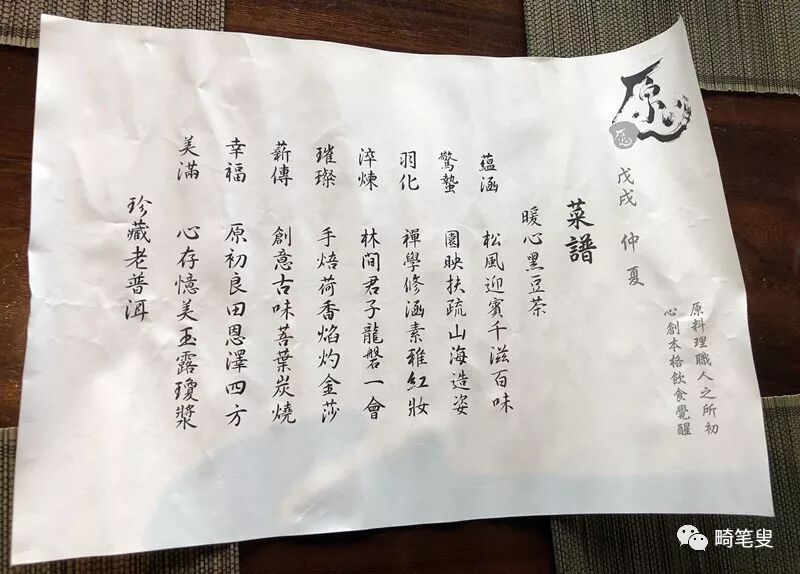 原
心
戊戌 仲夏
原料理職人之所初
心創本格飲食覺醒
菜譜
暖心黑豆茶
蘊涵 松風迎賓千滋百味
驚蟄 園映扶疏山海造姿
羽化 禪學修涵素雅紅妝
淬煉 林間君子龍磐一會
璀璨 手焙荷香焰灼金莎
薪傳 創意古味菩葉炭燒
幸福 原初良田恩澤四方
美滿 心存憶美玉露瓊漿
珍藏老普洱
畸笔叟